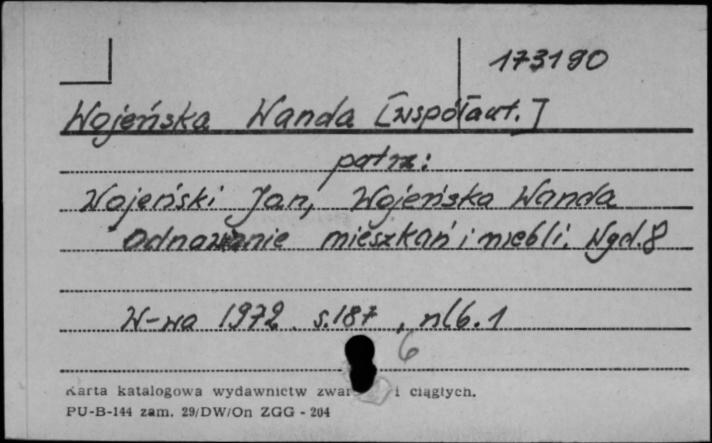 173190
Wojeńska Wanda [współaut.]
patrz:
Wojeński Jan, Wojeńska Wanda
Odnawianie mieszkań i mebli. Wyd. 8
W-wa 1972 s. 187, nlb. 1
6
Karta katalogowa wydawnictw i ciągłych.
PU-B-144 zam. 29/DW/On ZGG - 204